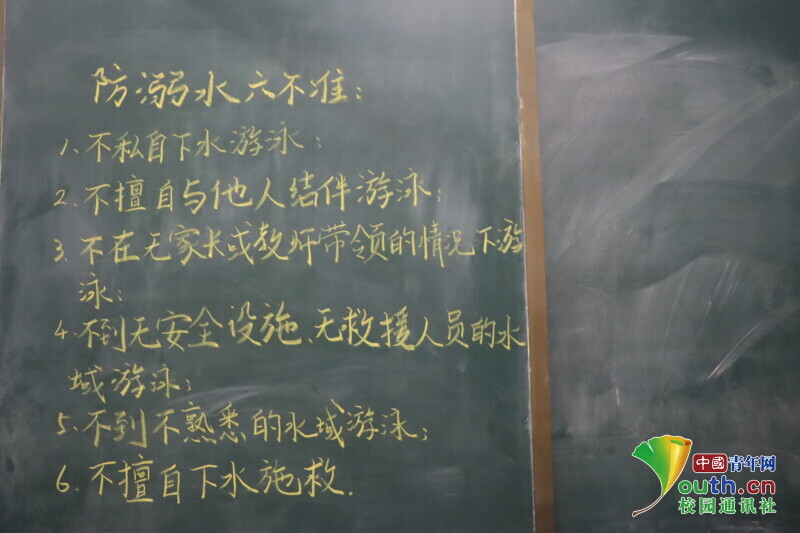 防溺水六不准：
1、不私自下水游泳；
2、不擅自与他人结伴游泳；
3、不在无家长或教师带领的情况下游
泳；
4、不到无安全设施、无救援人员的水
域游泳；
5、不到不熟悉的水域游泳；
6、不擅自下水施救.
中國青年网
youth.cn
校园通讯社